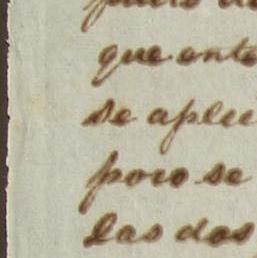 que ante
se aplu
poco se
las dos